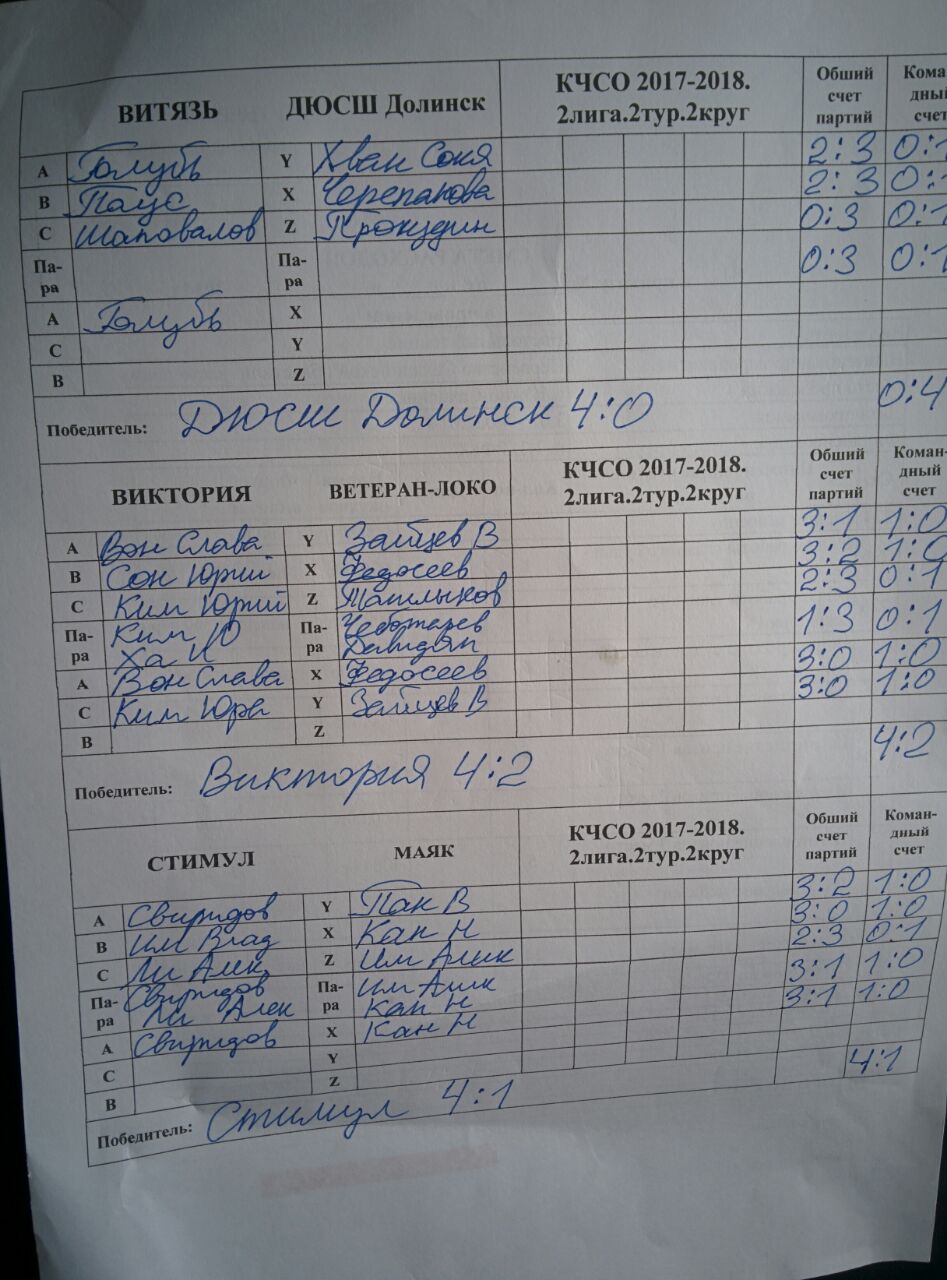 ВИТЯЗЬ ДЮСШ Долинск КЧСО 2017-2018. 2лига.2тур.2круг Обший счет партий Кома- дны счет
А Голубь Y Хван Соня 2:3 0:1
В Паус X Черепанова 2:3 0:1
С Шаповалов Z Прокудин 0:3 0:1
Па-ра Па-ра 0:3 0:1
А Голубь X
С Y
В Z
Победитель: ДЮСШ Долинск 4:0 0:4
ВИКТОРИЯ ВЕТЕРАН-ЛОКО КЧСО 2017-2018. 2лига.2тур.2круг Обший счет партий Коман-дный счет
А Вон Слава Y Зайцев В 3:1 1:0
В Сон Юрий X Федосеев 3:2 1:0
С Ким Юрий Z Ташлыков 2:3 0:1
Па-ра Ким Ю Ха И Па-ра Чеботарев Давидян 1:3 0:1
А Вон Слава X Федосеев 3:0 1:0
С Ким Юра Y Зайцев В 3:0 1:0
В Z
Победитель: Виктория 4:2 4:2
СТИМУЛ МАЯК КЧСО 2017-2018. 2лига.2тур.2круг Обший счет партий Коман-дный счет
А Свиридов Y Пак В 3:2 1:0
В Им Влад X Кан Н 3:0 1:0
С Ли Алек Z Им Алик 2:3 0:1
Па-ра Свиридов Ли Алек Па-ра Им Алик Кан Н 3:1 1:0
А Свиридов X Кан Н 3:1 1:0
С Y
В Z 4:1
Победитель: Стимул 4:1